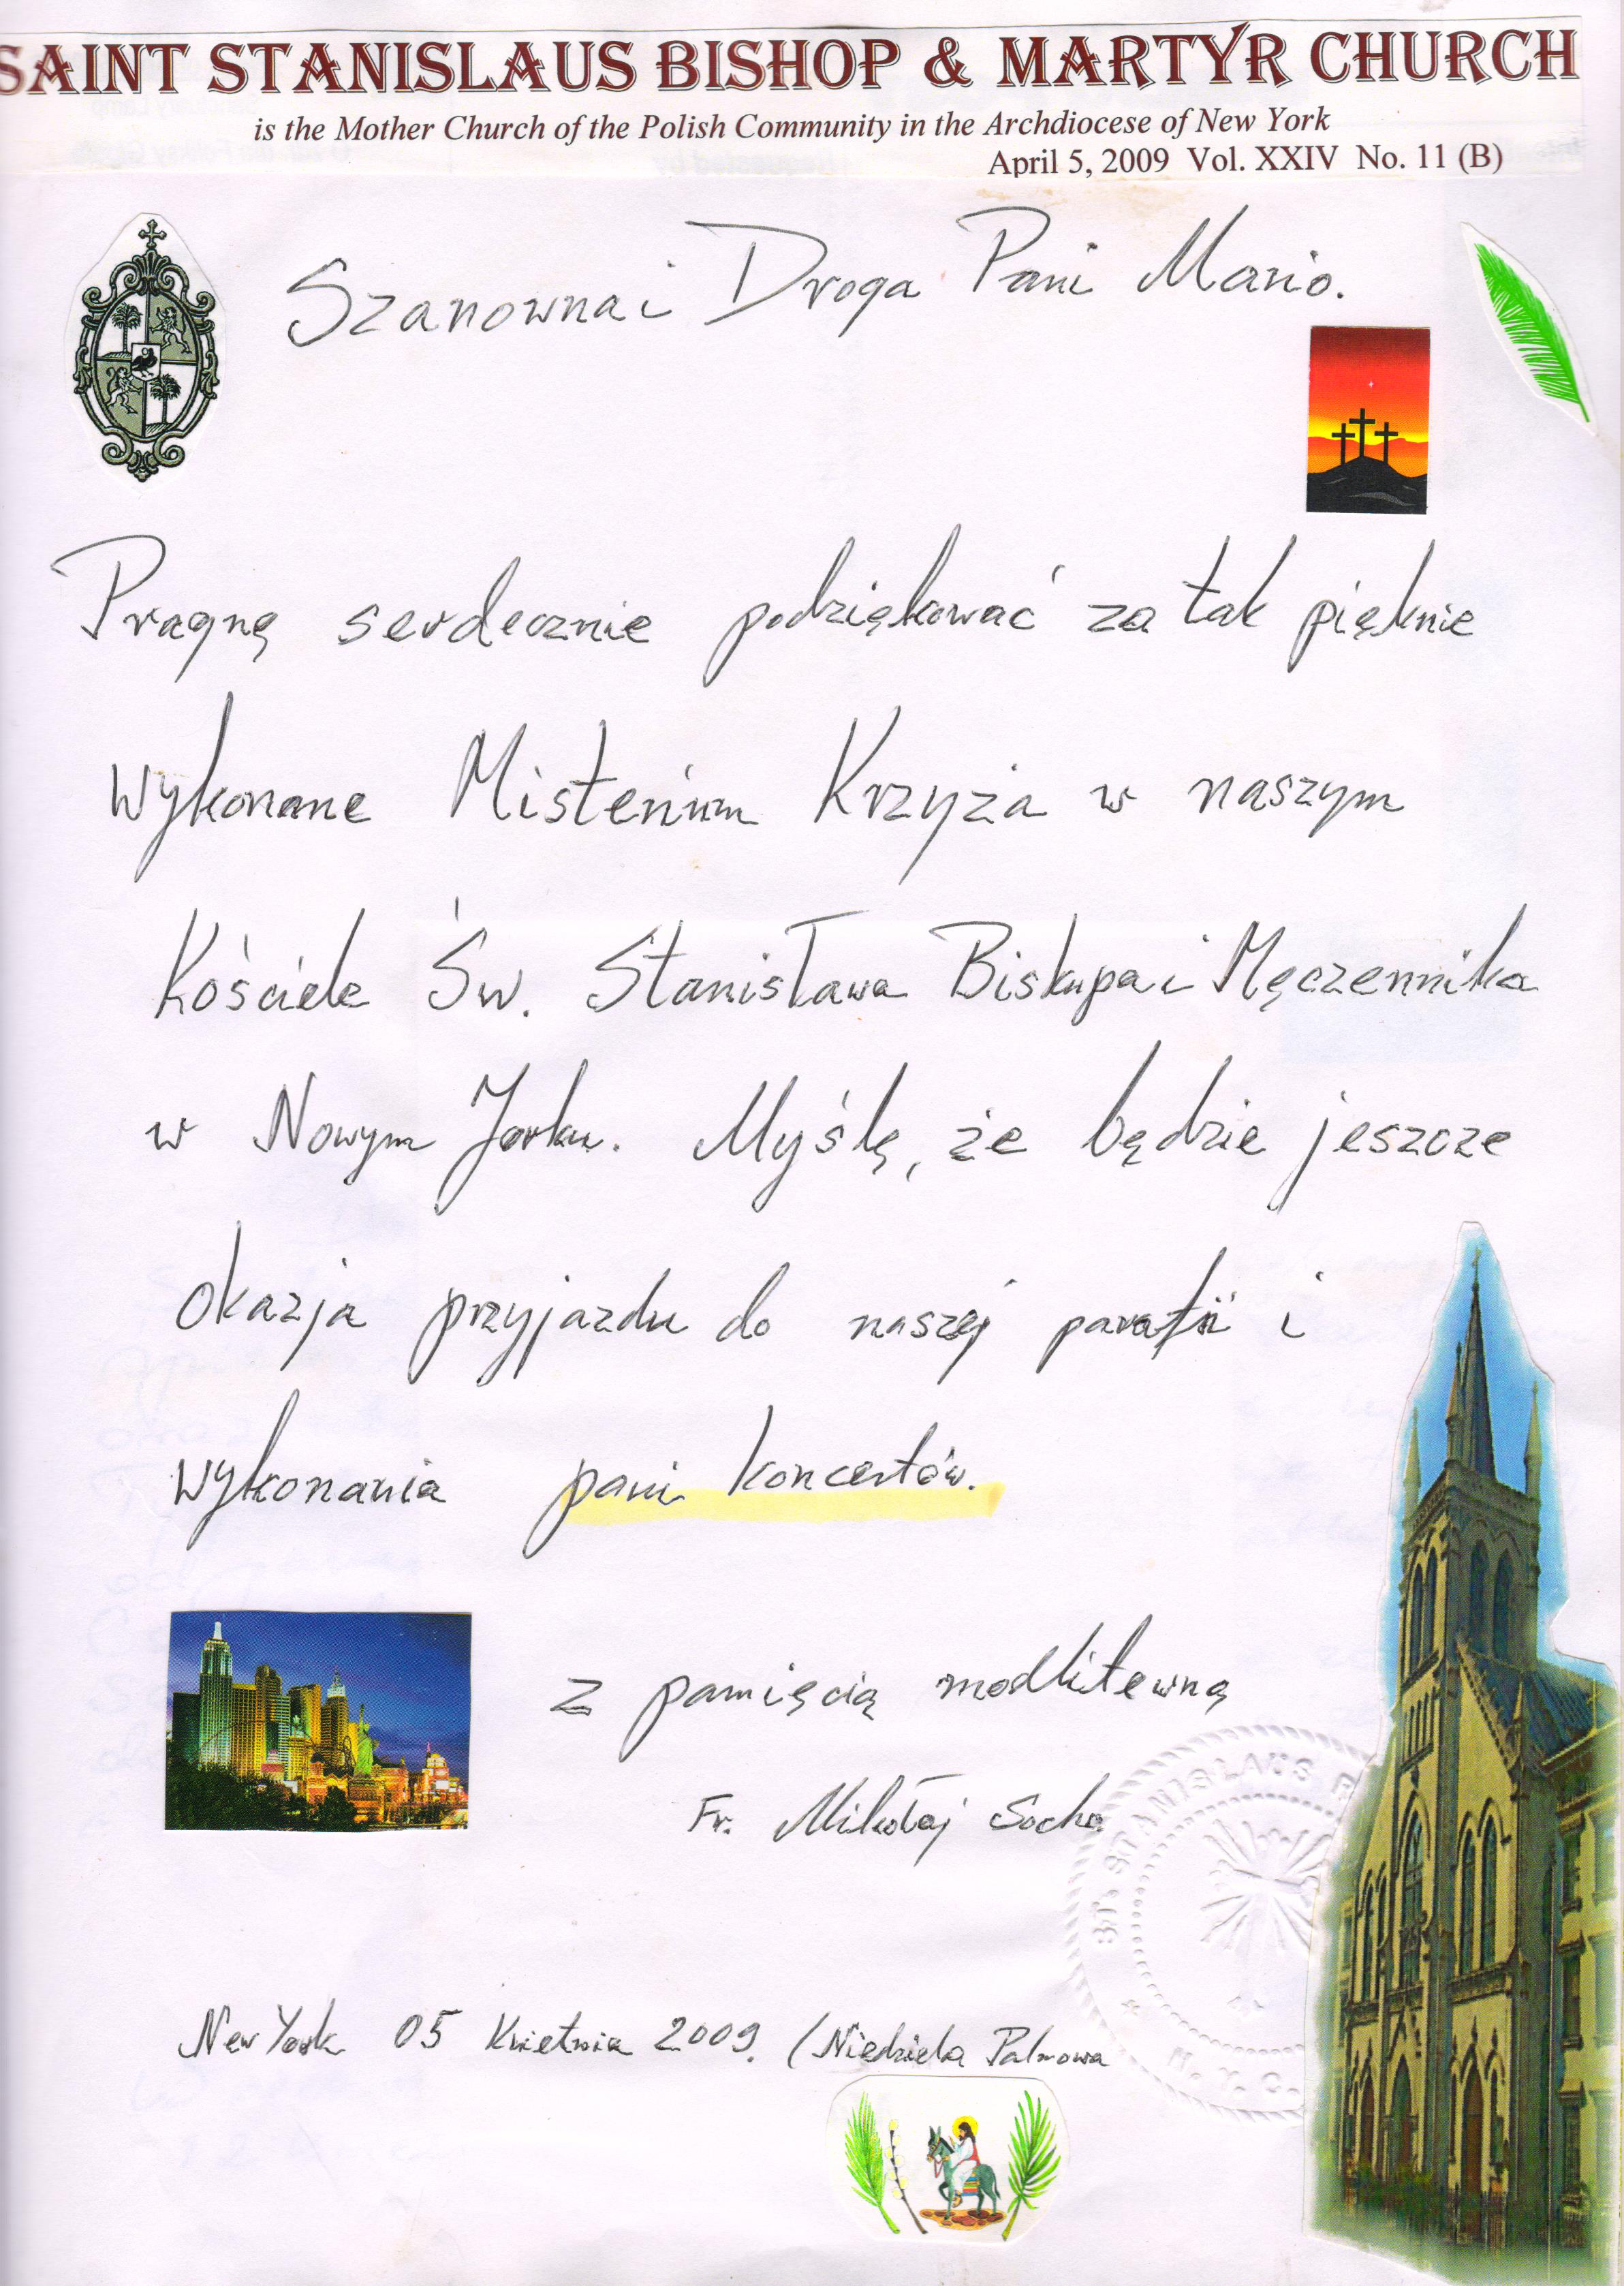 SAINT STANISLAUS BISHOP & MARTYR CHURCH
is the Mother Church of the Polish Community in the Archdiocese of New York
April 5, 2009 Vol. XXIV No. 11 (B)
Szanowna i Droga Pani Mario.
Pragnę serdecznie podziękować za tak pięknie
wykonane Misterium Krzyża w naszym
Kościele Św. Stanisława Biskupa i Męczennika
w Nowym Jorku. Myślę, że będzie jeszcze
okazja przyjazdu do naszej parafii i
wykonania pani koncertów.
z pamięcią modlitewną
Fr. Mikołaj Socha
ST. STANISLAUS
N.Y.C.
New York 05 Kwietnia 2009. (Niedziela Palmowa